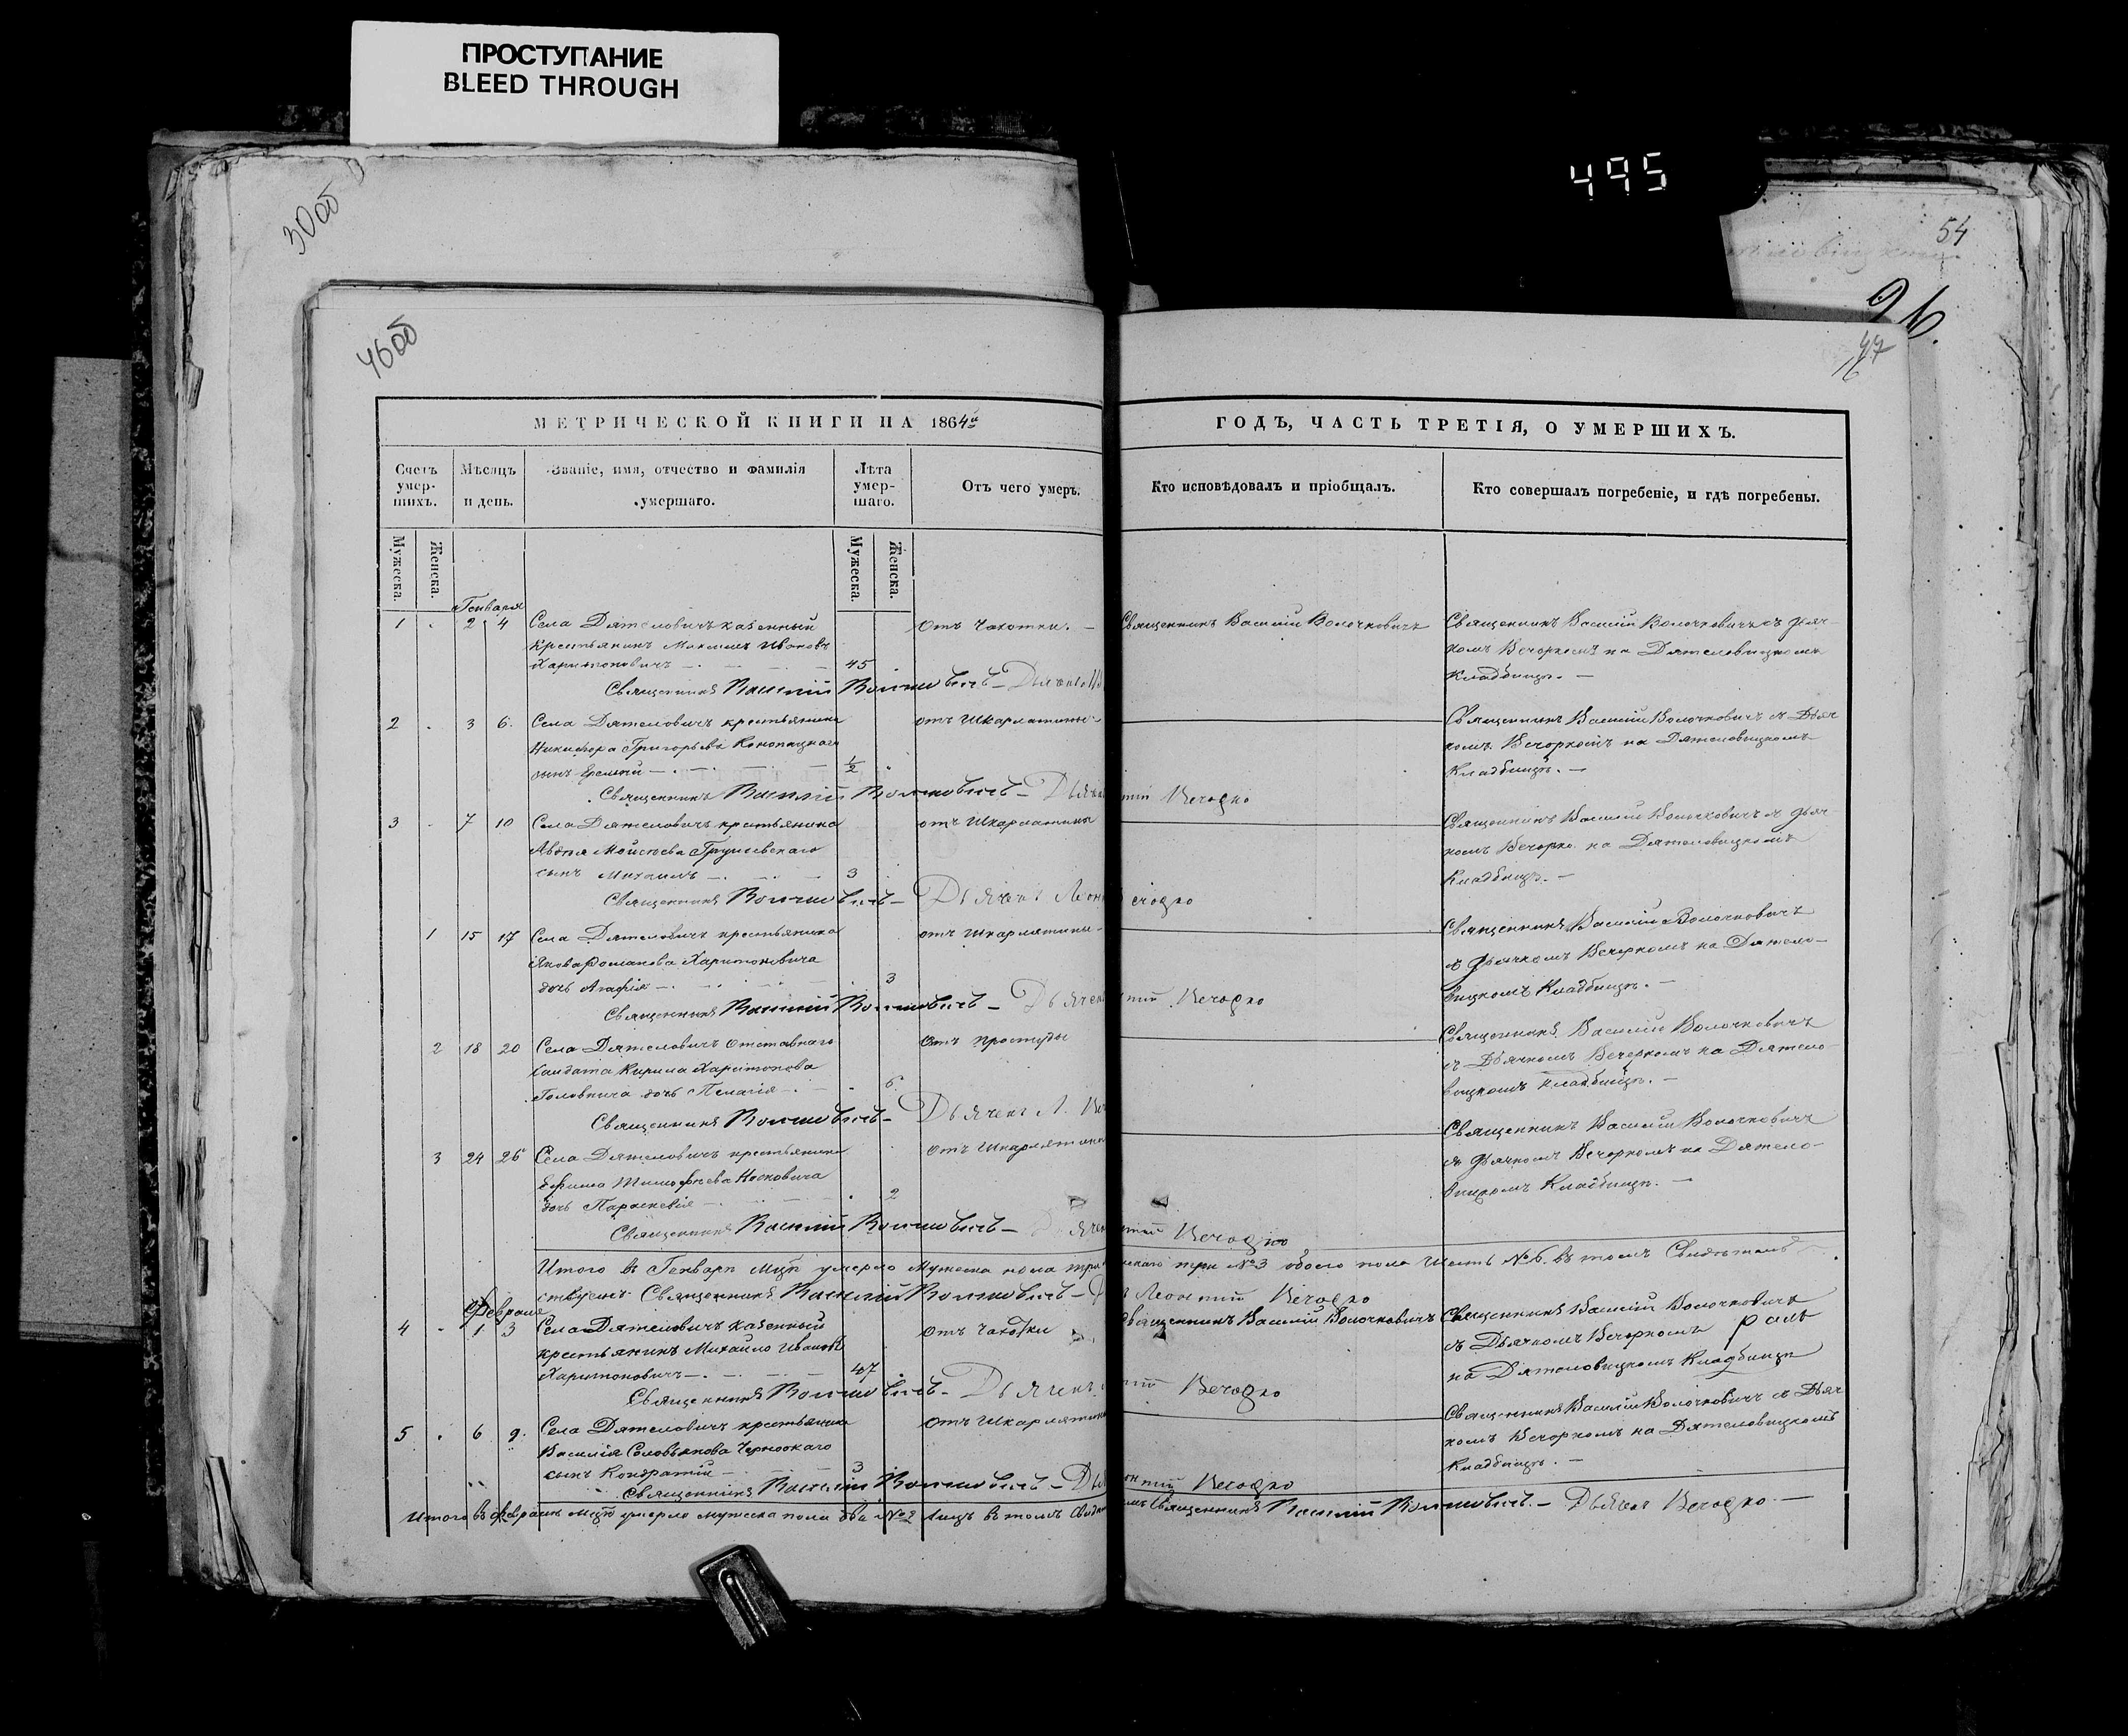 ПРОСТУПАНИЕ
BLEED THROUGH
495
30об
54
26.
46об
47
МЕТРИЧЕСКОЙ КНИГИ НА 1864й
ГОДЪ, ЧАСТЬ ТРЕТІЯ, О УМЕРШИХЪ.
Счетъ умер-шихъ.
Мѣсяцъ и день.
Званіе, имя, отчество и фамилія умершаго.
Лѣта умер-шаго.
Отъ чего умеръ.
Кто исповѣдовалъ и пріобщалъ.
Кто совершалъ погребеніе, и гдѣ погребены.
Мужеска.
Женска.
Мужеска.
Женска.
Генваря
1 2 4 Села Дятеловичъ казенный Отъ чахотки. Священникъ Василій Волочковичъ Священникъ Василій Волочковичъ съ дьяч-
крестьянинъ Максимъ Ивановъ комъ Вечоркомъ на Дятеловицкомъ
Харитоновичъ 45 Кладбищѣ.
Священникъ Василій Волочковичъ
2 3 6. Села Дятеловичъ крестьянина отъ Шкарлатины Священникъ Василій Волочковичъ съ Дьяч
Никифора Григорьева Конопацкаго комъ Вечоркомъ на Дятеловицкомъ
сынъ Еремій ½ Кладбищѣ.
Священникъ Василій Волочковичъ Вечорко
3 7 10 Села Дятеловичъ крестьянина отъ Шкарлатины Священникъ Василій Волочковичъ съ дьяч-
Авдѣя Мойсѣева комъ Вечорко. на Дятеловицкомъ
сынъ Михаилъ 3 Кладбищѣ.
Священникъ Волочковичъ Дьячекъ
1 15 17 Села Дятеловичъ крестьянина отъ Шкарлятины Священникъ Василій Волочковичъ
Якова Романова Харитоновича съ дьячкомъ Вечоркомъ на Дятело-
дочь Агафія 3 вицкомъ Кладбищѣ.
Священникъ Василій Волочковичъ Вечорко
2 18 20 Села Дятеловичъ отставнаго Отъ простуды Священникъ Василій Волочковичъ
солдата Кирила Харитонова съ Дьячкомъ Вечоркомъ на Дятело-
дочь Пелагія 6 вицкомъ кладбищѣ.
Священникъ Волочковичъ Дьячекъ Л.
3 24 26 Села Дятеловичъ крестьянина Отъ Шкарлятины Священникъ Василій Волочковичъ
Ефима Тимофѣева съ дьячкомъ Вечоркомъ на Дятело-
дочь Параскевія 2 вицкомъ Кладбищѣ.
Священникъ Василій Волочковичъ Вечорко
Итого въ Генварѣ умерло Мужеска пола три №3 обоего пола Шесть №6. въ томъ
ствуемъ: Священникъ Василій Волочковичъ Леонтій Вечорко
Февраля
4 1 3 Села Дятеловичъ казенный Отъ чахотки Священникъ Василій Волочковичъ Священникъ Василій Волочковичъ
крестьянинъ Михайло Ивановъ съ Дьячкомъ Вечоркомъ
Харитоновичъ 47 на Дятеловицкомъ Кладбищѣ
Священникъ Волочковичъ Дьячекъ Вечорко
5 6 9. Села Дятеловичъ крестьянина Отъ Шкарлятины Священникъ Василій Волочковичъ съ Дьяч
Василія комъ Вечоркомъ на Дятеловицкомъ
сынъ Кондратій 3 Кладбищѣ.
Священникъ Василій Волочковичъ Вечорко
Итого въ Февралѣ умерло мужеска пола два №2 въ томъ Священникъ Василій Волочковичъ. Дьячекъ Вечорко.